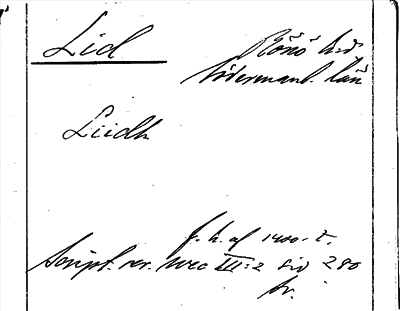 Lid
Rönö hd.
Södermanl. län
Liidh
f. h. af 1400-t.
Script. rer. svec III:2 sid 280
tr.